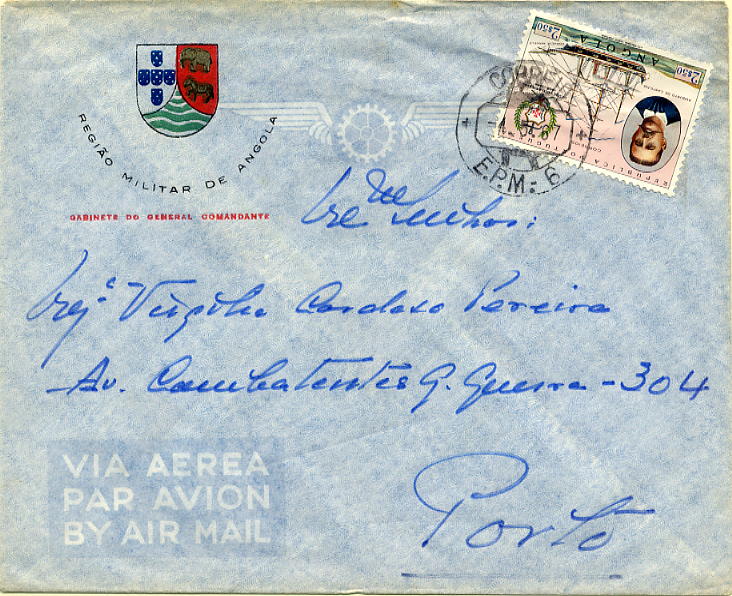 REGIÃO MILITAR DE ANGOLA
GABINETE DO GENERAL COMANDANTE
2$50 ANGOLA 2$50
REPUBLICA PORTUGUESA
CORREIO
E.P.M. - 6
Senhor:
Virgílio Cardoso Pereira
Av. Combatentes G. Guerra - 304
Porto
VIA AEREA
PAR AVION
BY AIR MAIL